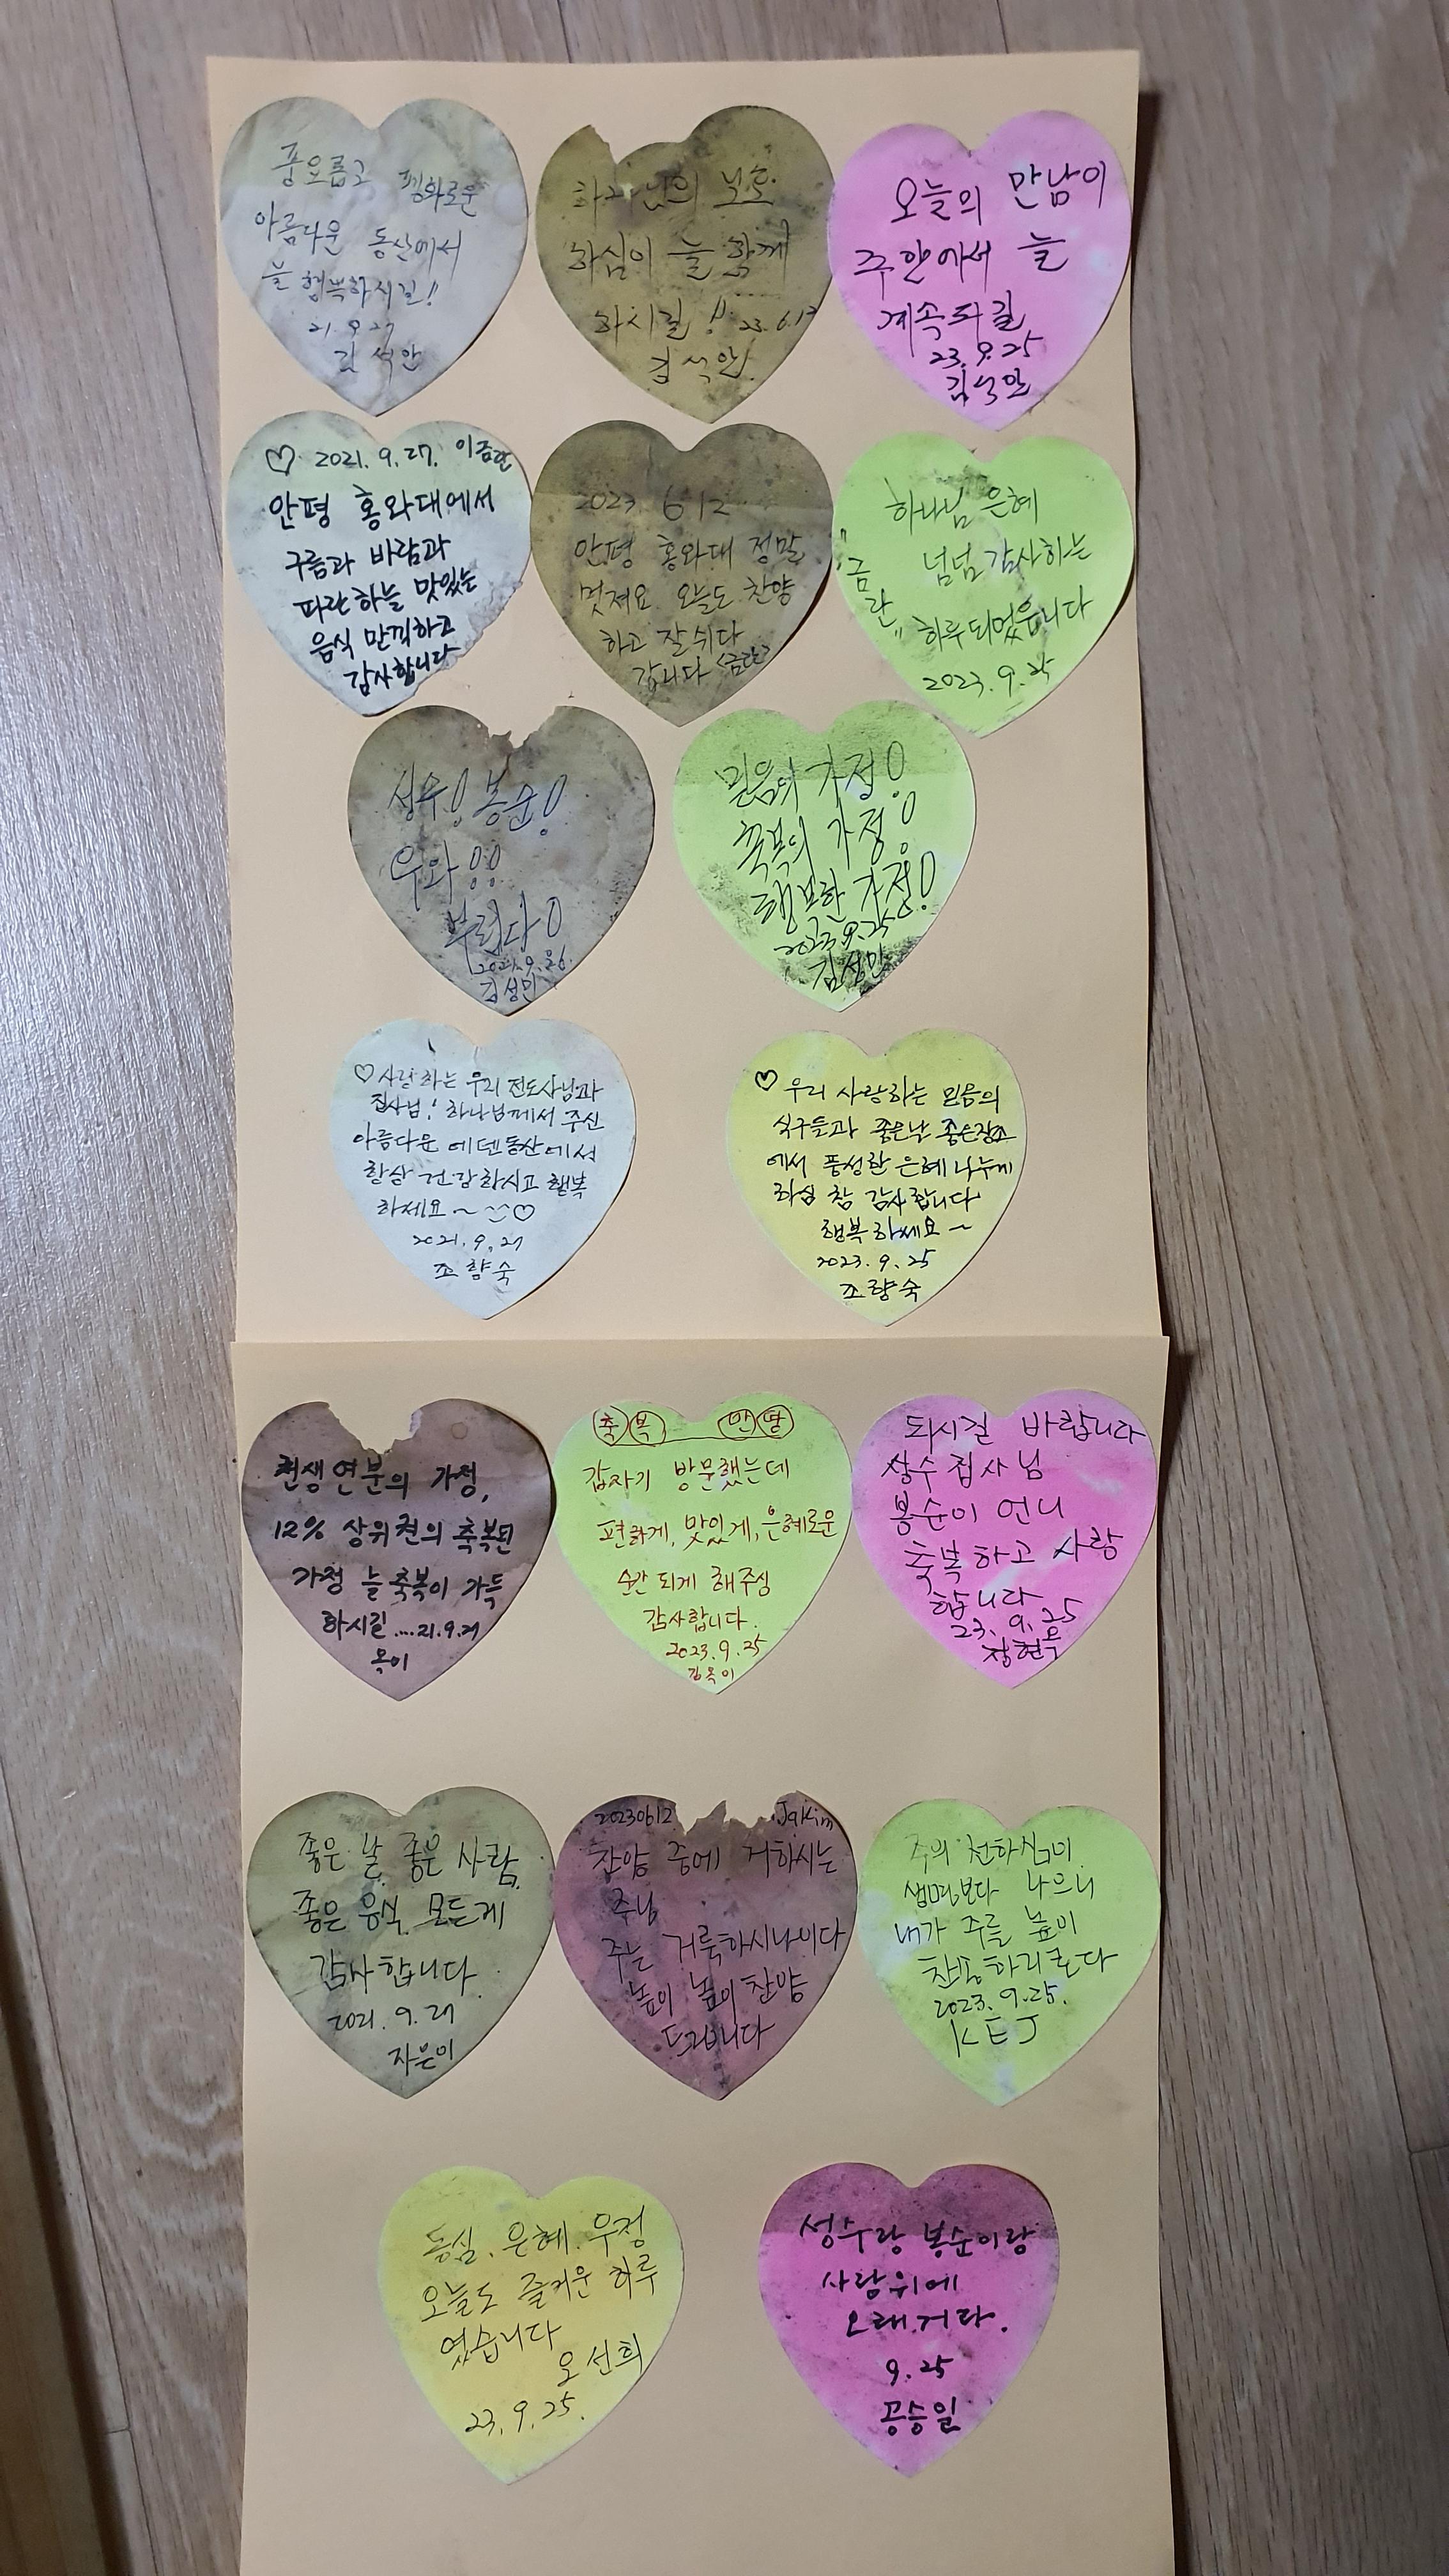 풍요롭고 평화로운
아름다운 동산에서
늘 행복하시길!
21.9.27
김석안
하나님의 보호
하심이 늘 함께
하시길!! 23.6.12
김석안
오늘의 만남이
주안에서 늘
계속되길
23.9.25
김석안
♡ 2021.9.27. 이금란
안평 홍와대에서
구름과 바람과
파란하늘 맛있는
음식 만끽하고
감사합니다
2023 6 12
안평 홍와대 정말
멋져요 오늘도 찬양
하고 잘쉬다
갑니다 <금란>
하나님 은혜
넘넘 감사하는
하루되었읍니다
"금란"
2023.9.25
성수! 봉순!
우와!!
부럽다!
김성민
믿음의 가정!
축복의 가정!
행복한 가정!
2023.9.25
김성민
♡사랑하는 우리 전도사님과
집사님! 하나님께서 주신
아름다운 에덴동산에서
항상 건강하시고 행복
하세요~ ♡
2021.9.27
조향숙
♡ 우리 사랑하는 믿음의
식구들과 좋은날 좋은장소
에서 풍성한 은혜 나누게
하심 참 감사합니다
행복하세요~
2023.9.25
조향숙
천생연분의 가정,
12% 상위권의 축복된
가정 늘 축복이 가득
하시길....21.9.27
옥이
축복 만땅
갑자기 방문했는데
편하게, 맛있게, 은혜로운
순간 되게 해주심
감사합니다.
2023.9.25
김옥이
되시길 바랍니다
상수 집사님
봉순이 언니
축복하고 사랑
합니다
23.9.25
좋은 날 좋은 사람
좋은 음식 모든게
감사합니다.
2021.9.27
자은이
20230612 Jakim
찬양 중에 거하시는
주님
주는 거룩하시나이다
높이 높이 찬양
드립니다
주의 인하심이
생명보다 나으니
내가 주를 높이
찬송하리로다
2023.9.25.
KEJ
동심. 은혜. 우정
오늘도 즐거운 하루
였습니다
오선희
23.9.25.
성수랑 봉순이랑
사람위에
오래.거다.
9.25
공승일